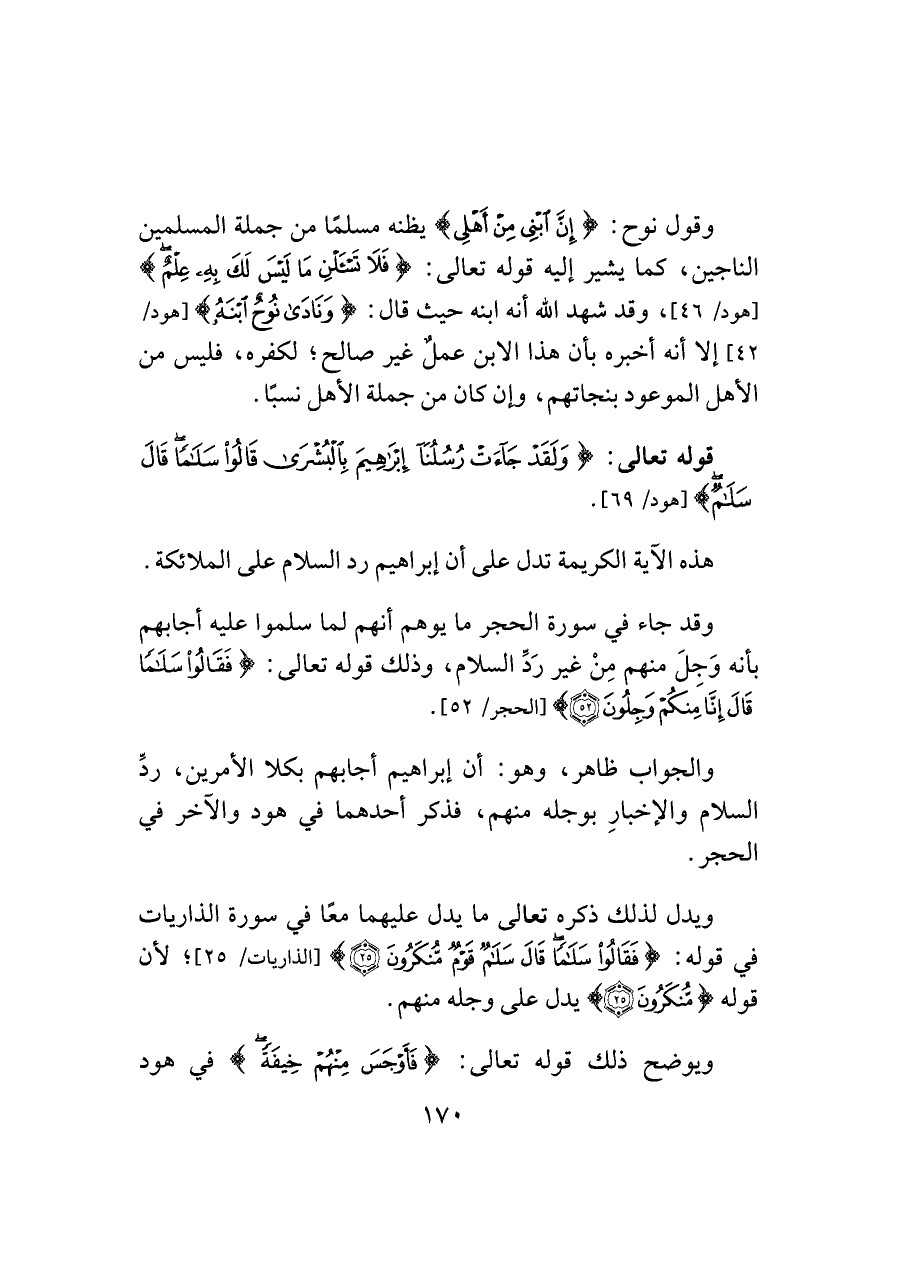 وقول نوح: ﴿إِنَّ ٱبْنِى مِنْ أَهْلِى﴾ يظنه مسلمًا من جملة المسلمين
الناجين، كما يشير إليه قوله تعالى: ﴿فَلَا تَسْـَٔلْنِ مَا لَيْسَ لَكَ بِهِۦ عِلْمٌۖ﴾
[هود/ ٤٦]، وقد شهد الله أنه ابنه حيث قال: ﴿وَنَادَىٰ نُوحٌ ٱبْنَهُۥ﴾ [هود/
٤٢] إلا أنه أخبره بأن هذا الابن عملٌ غير صالح؛ لكفره، فليس من
الأهل الموعود بنجاتهم، وإن كان من جملة الأهل نسبًا.
قوله تعالى: ﴿وَلَقَدْ جَآءَتْ رُسُلُنَآ إِبْرَٰهِيمَ بِٱلْبُشْرَىٰ قَالُوا۟ سَلَـٰمًاۖ قَالَ
سَلَـٰمٌۖ﴾ [هود/ ٦٩].
هذه الآية الكريمة تدل على أن إبراهيم رد السلام على الملائكة.
وقد جاء في سورة الحجر ما يوهم أنهم لما سلموا عليه أجابهم
بأنه وَجِلَ منهم مِنْ غير رَدِّ السلام، وذلك قوله تعالى: ﴿فَقَالُوا۟ سَلَـٰمًا
قَالَ إِنَّا مِنكُمْ وَجِلُونَ ٥٢﴾ [الحجر/ ٥٢].
والجواب ظاهر، وهو: أن إبراهيم أجابهم بكلا الأمرين، ردِّ
السلام والإخبارِ بوجله منهم، فذكر أحدهما في هود والآخر في
الحجر.
ويدل لذلك ذكره تعالى ما يدل عليهما معًا في سورة الذاريات
في قوله: ﴿فَقَالُوا۟ سَلَـٰمًاۖ قَالَ سَلَـٰمٌ قَوْمٌ مُّنكَرُونَ ٢٥﴾ [الذاريات/ ٢٥]؛ لأن
قوله ﴿مُّنكَرُونَ ٢٥﴾ يدل على وجله منهم.
ويوضح ذلك قوله تعالى: ﴿فَأَوْجَسَ مِنْهُمْ خِيفَةًۖ﴾ في هود
١٧٠